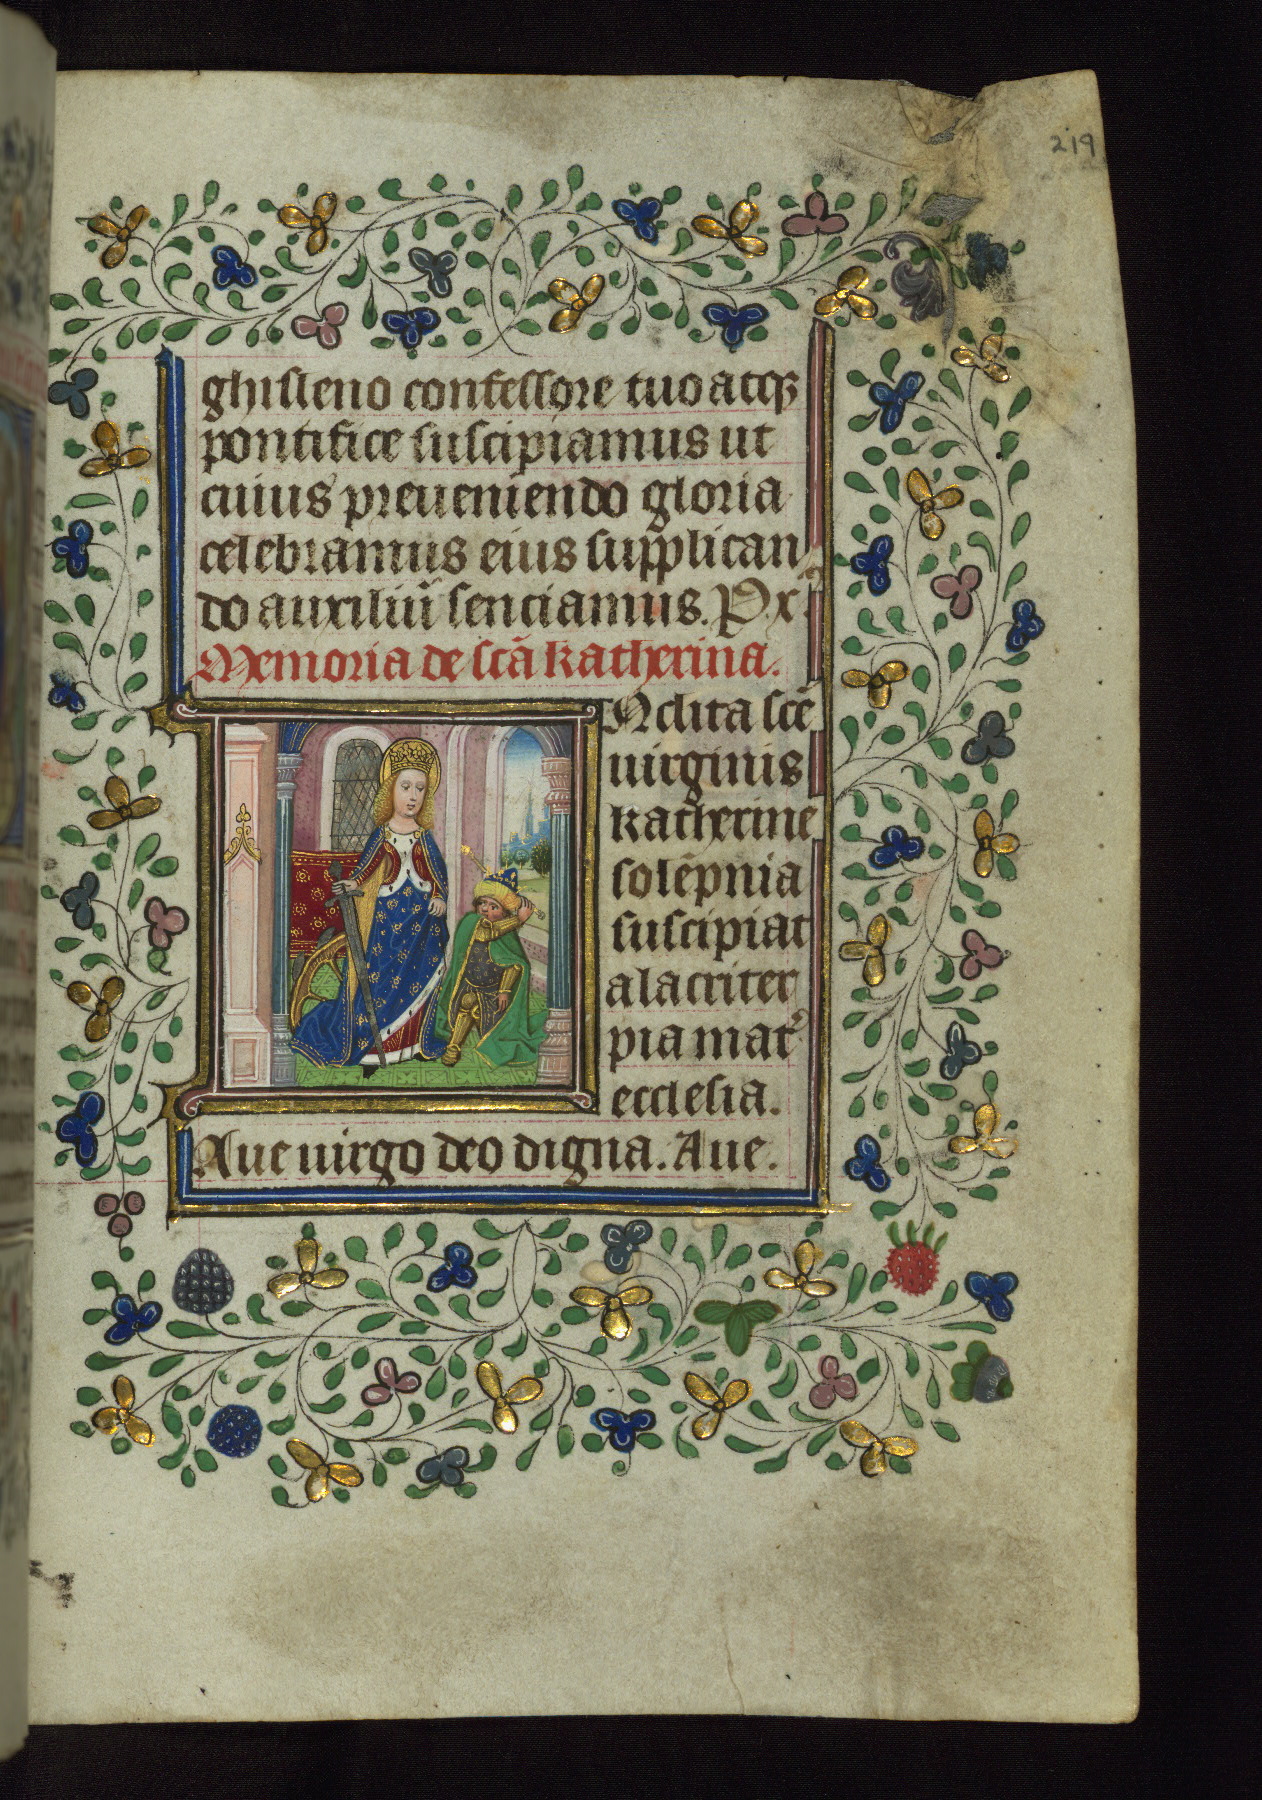 219
ghisleno confessore tuo atqꝫ
pontifice suscipiamus ut
cuius preueniendo gloria
celebramus eius supplican
do auxiliū senciamus. P. x
Memoria de scā katherina.
Nclita scē
uirginis
katherine
solēpnia
suscipiat
alacriter
pia mat᷒
ecclesia.
Aue uirgo deo digna. Aue.